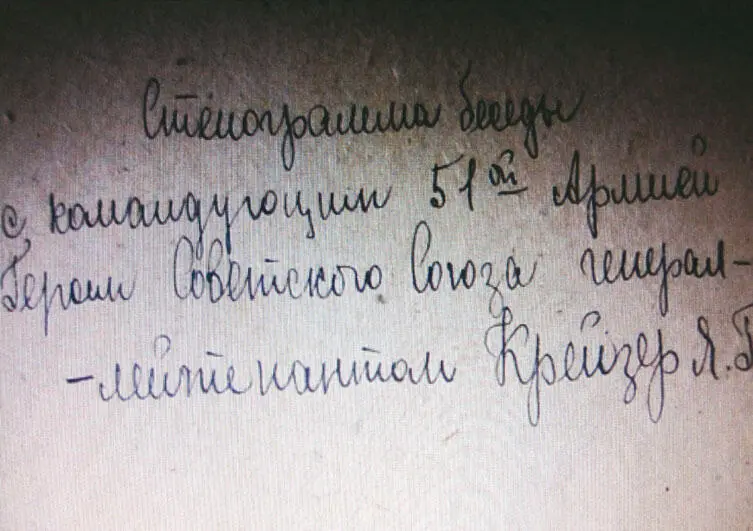 Стенограмма беседы
с командующим 51ой Армией
Героем Советского Союза генерал-
-лейтенантом Крейзер Я.Г